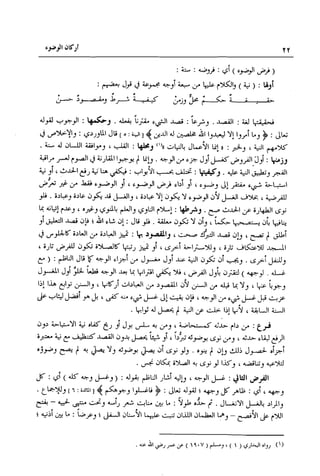 ٢٢ أركان الوضوء
( فرض الوضوء ) أي : فروضه : ستة :
أولها : ( نية ) والكلام عليها من سبعة أوجه مجموعة في قول بعضهم :
حقيـقـة حكـم محل وزمن كيفيـة شـرط ومقصـود حسن
فحقيقتها لغة : القصد . وشرعاً : قصد الشيء مقترناً بفعله . وحكمها : الوجوب لقوله
تعالى : ﴿ وما أمروا إلا ليعبدوا الله مخلصين له الدين ﴾ [البينة : ٥] قال الماوردي : والإخلاص في
كلامهم النية ، ولخبر : « إنما الأعمال بالنيات »(١) ومحلها : القلب ، وموافقة اللسان له سنة .
وزمنها : أول الفروض كغسل أول جزء من الوجه . وإنما لم يوجبوا المقارنة في الصوم لعسر مراقبة
الفجر وتطبيق النية عليه . وكيفيتها : تختلف بحسب الأبواب : فيكفي هنا نية رفع الحدث ، أو نية
استباحة شيء مفتقر إلى وضوء ، أو أداء فرض الوضوء ، أو الوضوء فقط من غير تعرُّض
للفرضية ، بخلاف الغسل لأن الوضوء لا يكون إلا عبادة ، والغسل قد يكون عادة وعبادة . فلو
نوى الطهارة عن الحدث صح . وشرطها : إسلام الناوي والعلم بالمنوي وتمييزه ، وعدم إتيانه بما
ينافيها بأن يستصحبها حكماً ، وأن لا تكون معلقة . فلو قال : إن شاء الله ؛ فإن قصد التعليق أو
أطلق لم تصح ، وإن قصد التبرك صحت . والمقصود بها : تمييز العبادة عن العادة كالجلوس في
المسجد للاعتكاف تارة ، وللاستراحة أخرى ، أو تمييز رتبتها كالصلاة تكون للفرض تارة ،
وللنفل أخرى . ويجب أن تكون النية عند أول مغسول من أجزاء الوجه كما قال الناظم : ( مع
غسله . لوجهه ) لتقترن بأول الفرض ، فلا يكفي اقترانها بما بعد الوجه قطعاً لخلوّ أول المغسول
وجوباً عنها ، ولا بما قبله من السنن لأن المقصود من العبادات أركانها ، والسنن توابع هذا إذا
عزبت قبل غسل شيء من الوجه ، فإن بقيت إلى غسل شيء منه كفى ، بل هو أفضل ليثاب على
السنة السابقة ، لأنها إذا خلت عن النية لم يحصل له ثوابها .
فـرع : من دام حدثه كمستحاضة ، ومن به سلس بول أو ريح كفاه نية الاستباحة دون
الرفع لبقاء حدثه ، ومن نوى بوضوئه تبرُّداً ، أو شيئاً يحصل بدون القصد كتنظف مع نية معتبرة
أجزأه لحصول ذلك وإن لم ينوه . ولو نوى أن يصلي بوضوئه ولا يصلي به لم يصح وضوؤه
لتلاعبه وتناقضه ، وكذا لو نوى به الصلاة بمكان نجس .
الفرض الثاني : غسل الوجه ، وإليه أشار الناظم بقوله : ( وغسل وجه كله ) أي : كل
وجهه ، أي : ظاهر كل وجهه ؛ لقوله تعالى : ﴿ فاغسلوا وجوهكم ﴾ [المائدة : ٦] وللإجماع .
والمراد بالغسل الانغسال . ثم حدّه طولاً : ما بين منابت شعر رأسه وتحت منتهى لحييه – بفتح
اللام على الأفصح – وهما العظمان اللذان تنبت عليهما الأسنان السفلى ؛ وعرضاً : ما بين أذنيه ؛
(١) رواه البخاري ( ١ ) ، ومسلم ( ١٩٠٧ ) عن عمر رضي الله عنه .